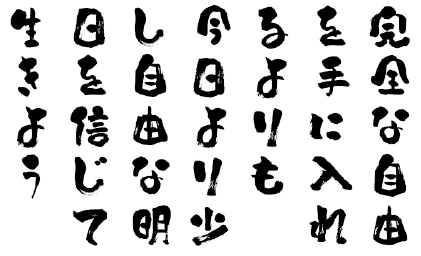 完全な自由
を手に入れ
るよりも
今日より少
し自由な明
日を信じて
生きよう